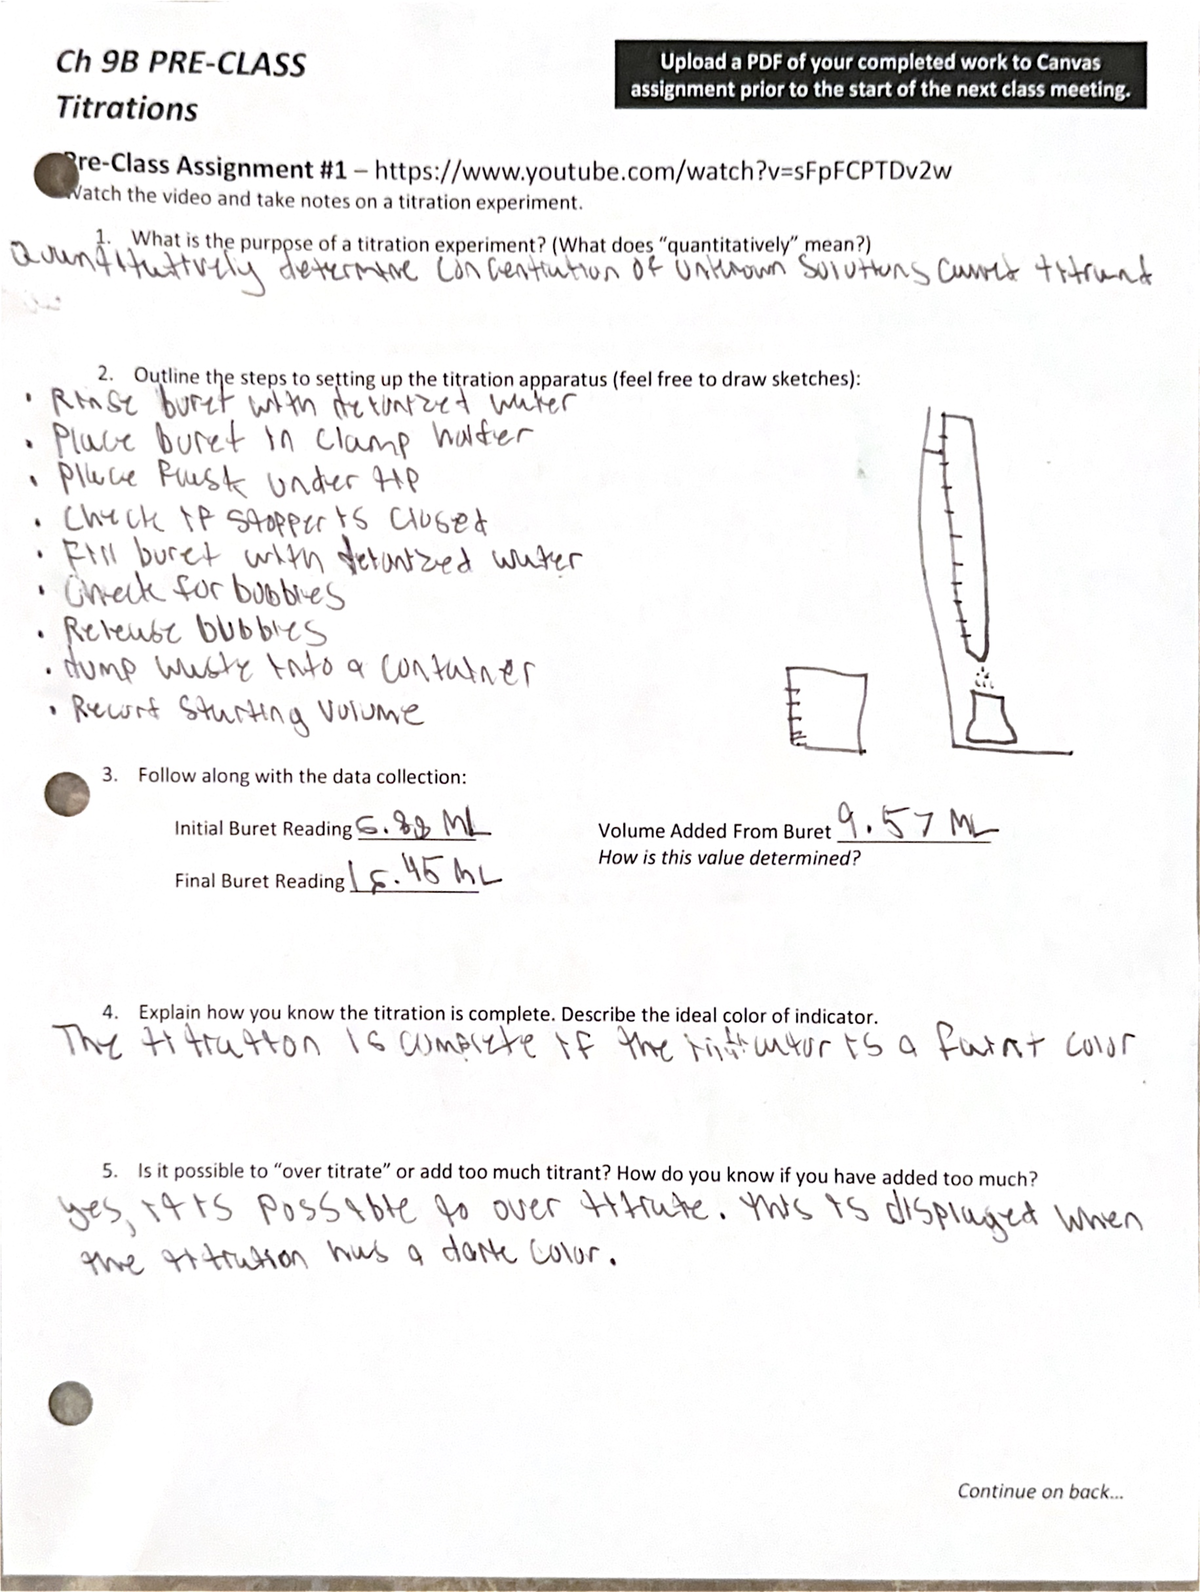 Ch 9B PRE-CLASS
Titrations
Upload a PDF of your completed work to Canvas
assignment prior to the start of the next class meeting.
Pre-Class Assignment #1 – https://www.youtube.com/watch?v=sFpFCPTDv2w
Watch the video and take notes on a titration experiment.
1. What is the purpose of a titration experiment? (What does “quantitatively” mean?)
Quantitatively determine concentration of unknown solutions called titrant
2. Outline the steps to setting up the titration apparatus (feel free to draw sketches):
• Rinse buret with deionized water
• Place buret in clamp holder
• Place flask under tip
• Check if stopper is closed
• Fill buret with deionized water
• Check for bubbles
• Release bubbles
• dump waste into a container
• Record starting volume
3. Follow along with the data collection:
Initial Buret Reading 5.88 mL
Volume Added From Buret 9.57 mL
How is this value determined?
Final Buret Reading 15.45 mL
4. Explain how you know the titration is complete. Describe the ideal color of indicator.
The titration is complete if the indicator is a faint color
5. Is it possible to “over titrate” or add too much titrant? How do you know if you have added too much?
yes, it is possible to over titrate. this is displayed when
the titration has a dark color.
Continue on back...